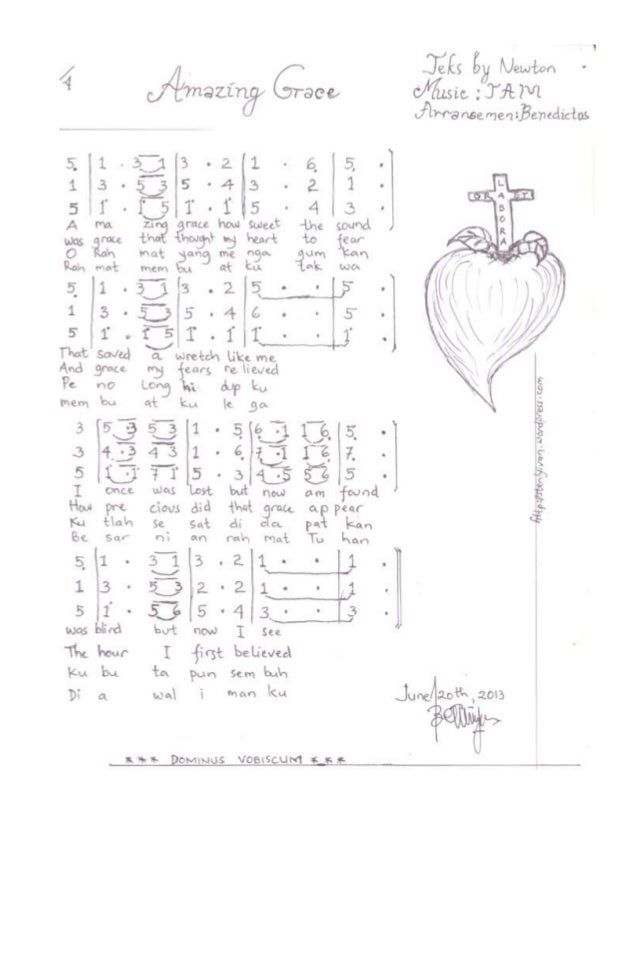 4
Amazing Grace
Teks by Newton
Music : JAM
Arransemen: Benedictos
5 | 1 . 3 1 | 3 . 2 | 1 . 6 | 5 .
1 | 3 . 5 3 | 5 . 4 | 3 . 2 | 1 .
5 | 1 . 1 5 | 1 . 1 | 5 . 4 | 3 .
A ma zing grace how sweet the sound
was grace that thought my heart to fear
O Rah mat yang me nga gum kan
Rah mat mem bu at ku tak wa
5 | 1 . 3 1 | 3 . 2 | 5 . . | 5 .
1 | 3 . 5 3 | 5 . 4 | 6 . . | 5 .
5 | 1 . 1 5 | 1 . 1 | 1 . . | 1 .
That saved a wretch like me
And grace my fears re lieved
Pe no Long hi dup ku
mem bu at ku le ga
3 | 5 . 3 5 3 | 1 . 5 | 6 . 1 1 6 | 5 .
3 | 4 . 3 4 3 | 1 . 6 | 7 . 1 1 6 | 7 .
5 | 1 . 1 7 1 | 5 . 3 | 4 . 5 5 6 | 5 .
I once was Lost but now am found
How pre cious did that grace ap pear
Ku tlah se sat di da pat kan
Be sar ni an rah mat Tu han
5 | 1 . 3 1 | 3 . 2 | 1 . . | 1 .
1 | 3 . 5 3 | 2 . 2 | 1 . . | 1 .
5 | 1 . 5 6 | 5 . 4 | 3 . . | 3 .
was blind but now I see
The hour I first believed
Ku bu ta pun sem buh
Di a wal i man ku
LABORA
ET
June/20th, 2013
*** DOMINUS VOBISCUM ***